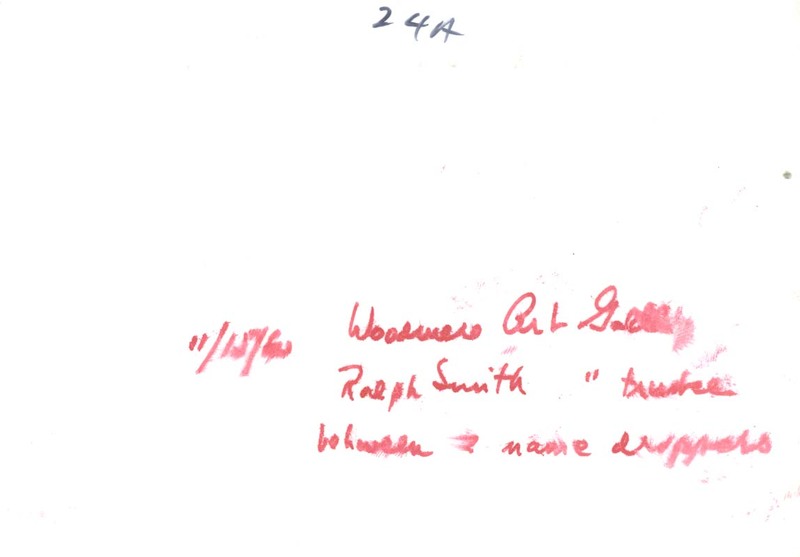 24A
Woodmere Art Gallery
Ralph Smith " trustee
between 2 name droppers